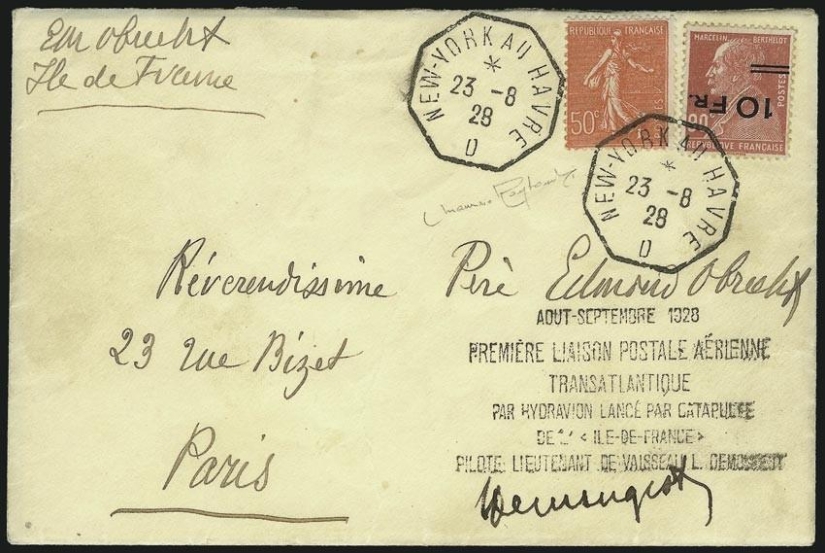 Em Obrecht
Ile de France
NEW-YORK AU HAVRE
*
23 -8
28
D
REPUBLIQUE FRANÇAISE
50c
POSTES
MARCELIN BERTHELOT
POSTES
10 FR.
90
REPUBLIQUE FRANÇAISE
NEW-YORK AU HAVRE
*
23 -8
28
D
Réverendissime Père Edmond Obrecht
23 rue Bizet
Paris
AOUT-SEPTEMBRE 1928
PREMIÈRE LIAISON POSTALE AÉRIENNE
TRANSATLANTIQUE
PAR HYDRAVION LANCÉ PAR CATAPULTE
DE L' < ILE-DE-FRANCE>
PILOTE: LIEUTENANT DE VAISSEAU L. DEMOUGEOT
LDemougeot